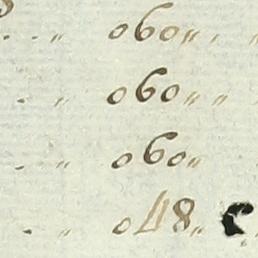 . . „ 060 „ . „
. „ 060 „ „
. „ 060 „
. „ 048 „